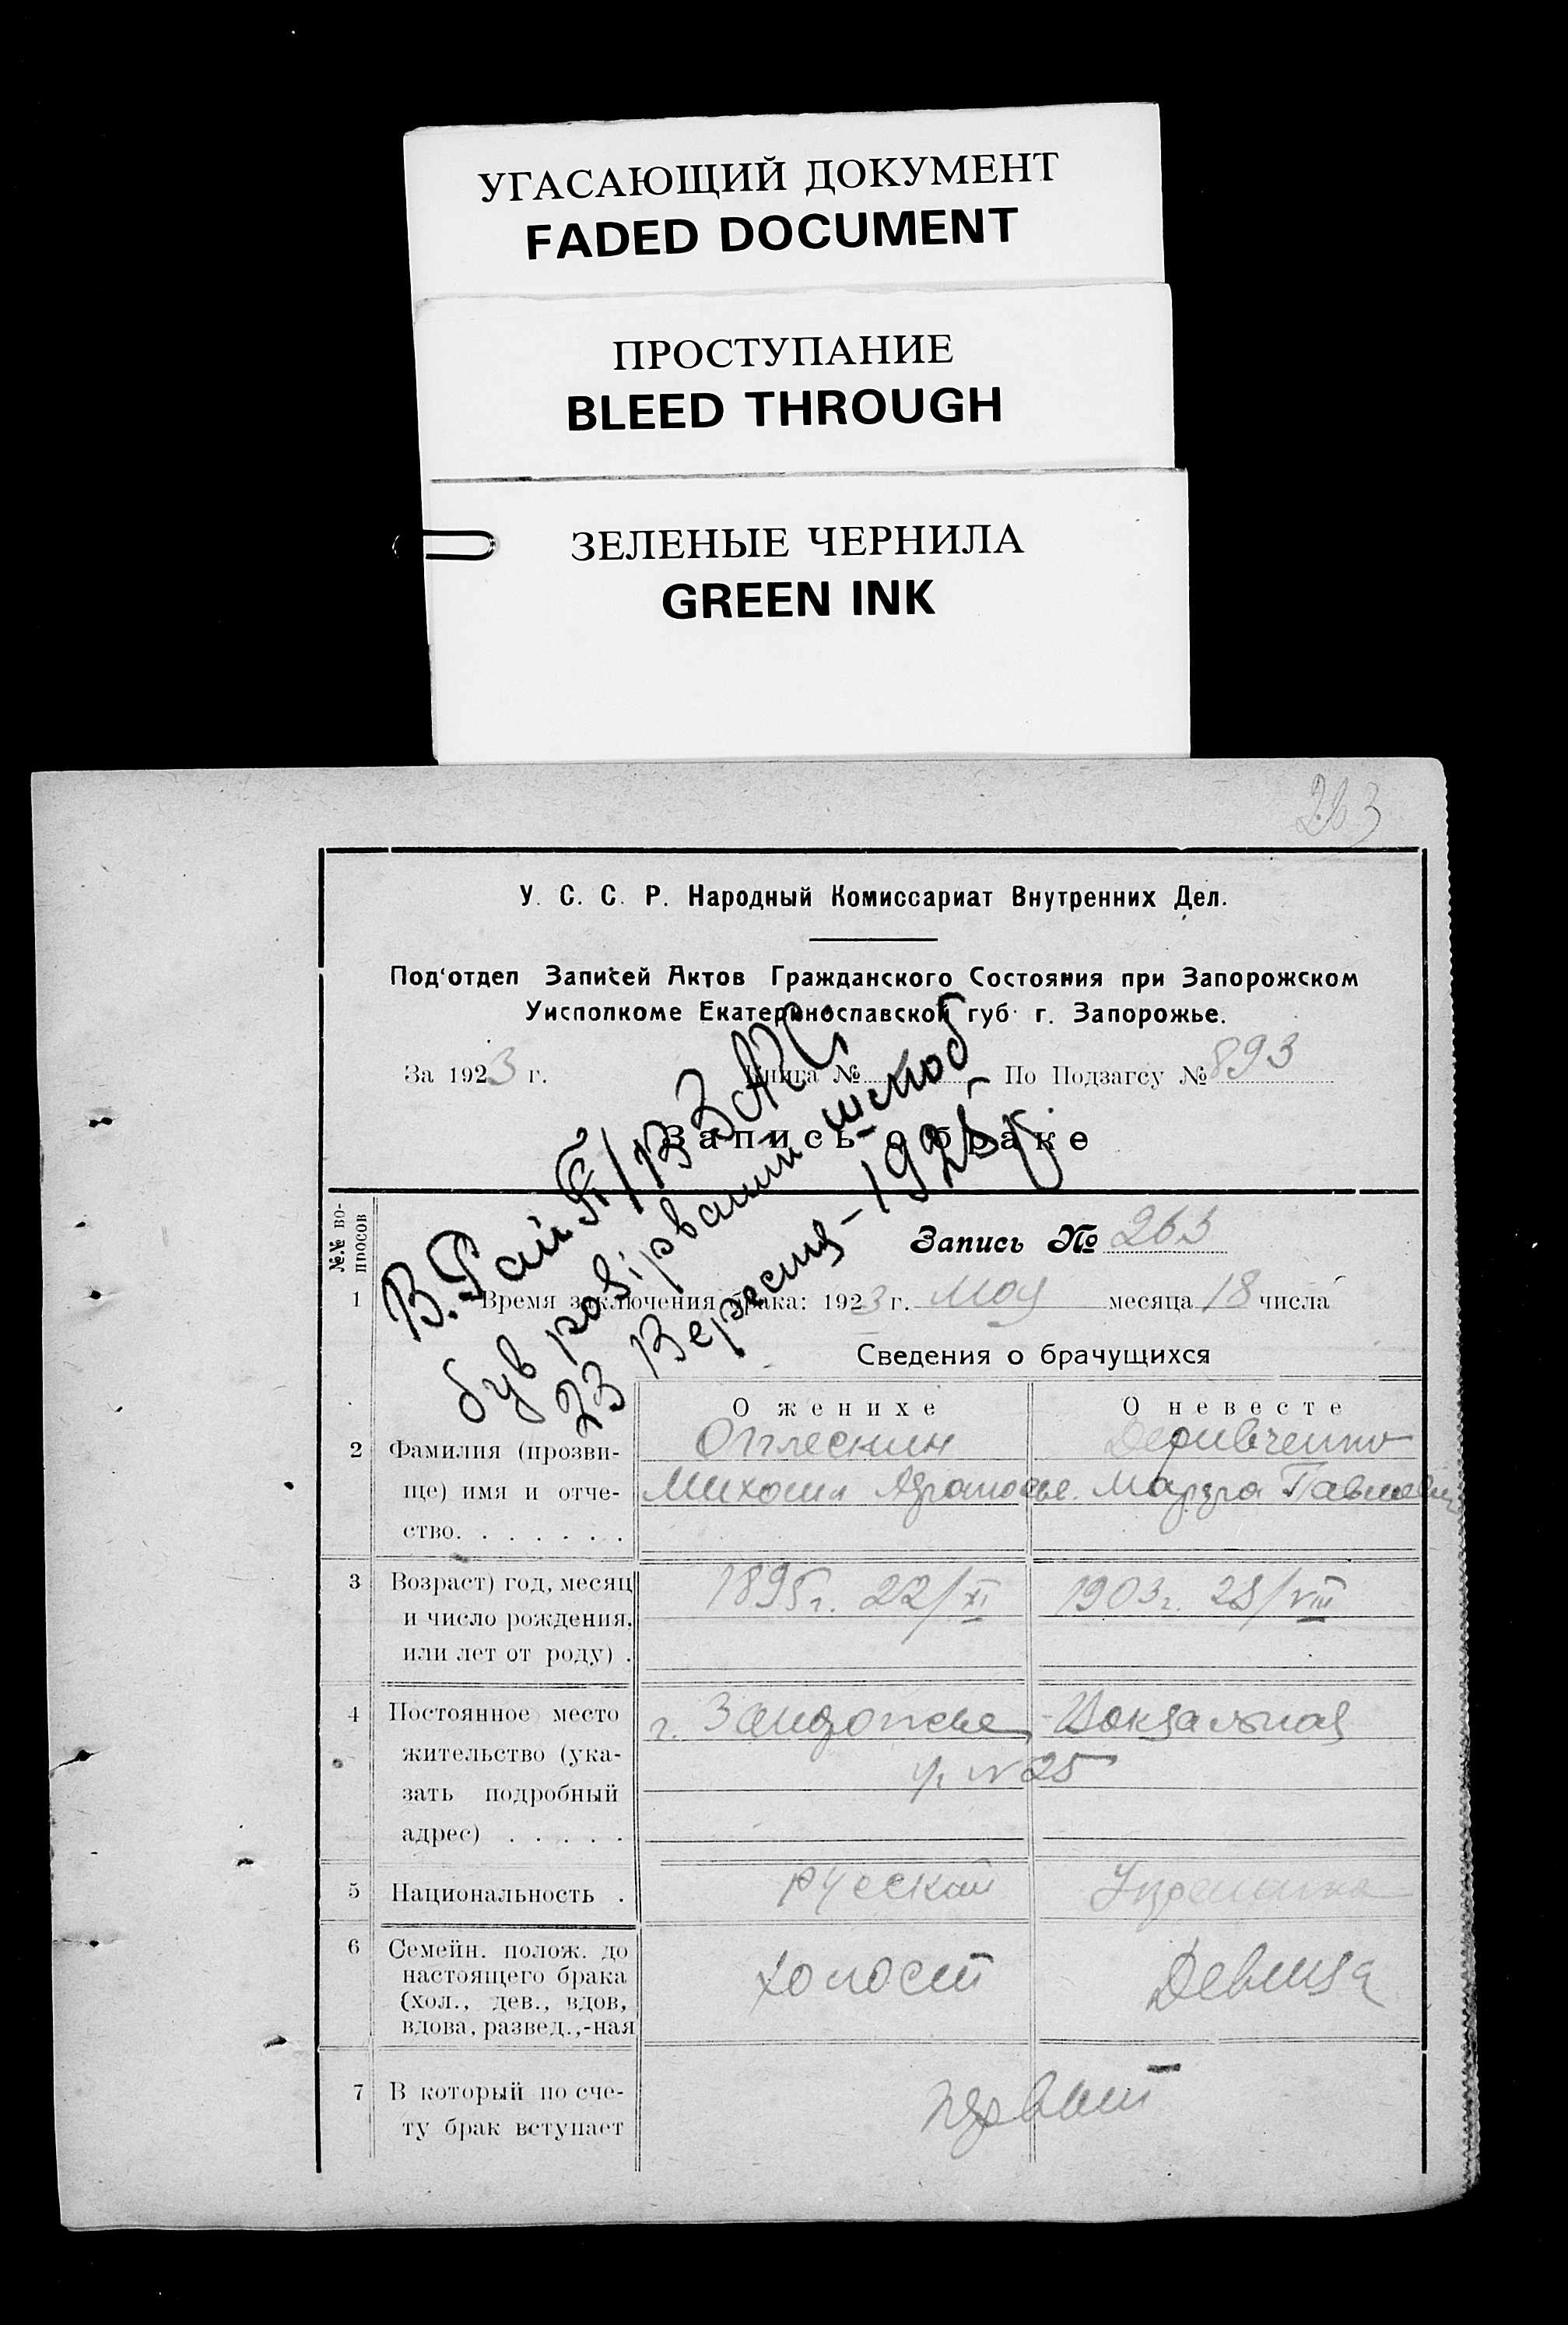 УГАСАЮЩИЙ ДОКУМЕНТ
FADED DOCUMENT
ПРОСТУПАНИЕ
BLEED THROUGH
ЗЕЛЕНЫЕ ЧЕРНИЛА
GREEN INK
263
У. С. С. Р. Народный Комиссариат Внутренних Дел.
Под'отдел Записей Актов Гражданского Состояния при Запорожском
Уисполкоме Екатеринославской губ. г. Запорожье.
За 1923 г. Книга № По Подзагсу № 893
Запись о браке
№№ вопросов
Запись № 263
1 Время заключения брака: 1923 г. мая месяца 18 числа
23 Вересня - 1925 р.
Сведения о брачущихся
О женихе О невесте
2 Фамилия (прозви- Деривченко
ще) имя и отче- Михаил
ство. . . . . . .
3 Возраст) год, месяц 1895 г. 22/XI 1903 г. 28/VIII
и число рождения,
или лет от роду) .
4 Постоянное место г. Запорожье, Вокзальная
жительство (ука- у. № 25
зать подробный
адрес) . . . . .
5 Национальность . русский Украинка
6 Семейн. полож. до холост Девица
настоящего брака
(хол., дев., вдов,
вдова, развед.,-ная
7 В который по сче- первый
ту брак вступает